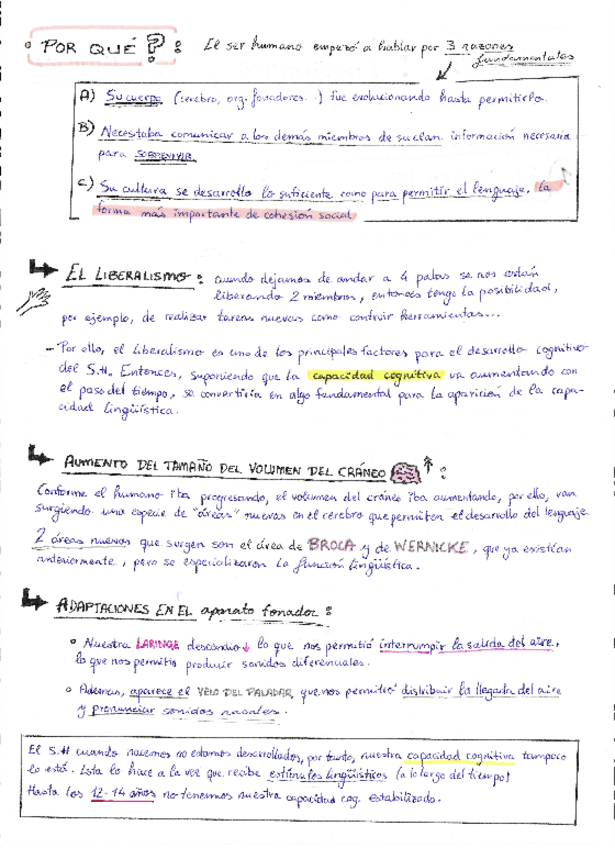 • POR QUÉ?: El ser humano empezó a hablar por 3 razones
fundamentales
A) Su cuerpo (cerebro, org. fonadores..) fue evolucionando hasta permitirlo.
B) Necesitaba comunicar a los demás miembros de su clan información necesaria
para SOBREVIVIR.
C) Su cultura se desarrolló lo suficiente como para permitir el lenguaje, la
forma más importante de cohesión social
EL LIBERALISMO: cuando dejamos de andar a 4 patas se nos están
liberando 2 miembros, entonces tengo la posibilidad,
por ejemplo, de realizar tareas nuevas como contruir herramientas...
- Por ello, el liberalismo es uno de los principales factores para el desarrollo cognitivo
del S.H. Entonces, suponiendo que la capacidad cognitiva va aumentando con
el paso del tiempo, se convertiría en algo fundamental para la aparición de la capa-
cidad lingüística.
AUMENTO DEL TAMAÑO DEL VOLUMEN DEL CRÁNEO ↑:
Conforme el humano iba progresando, el volumen del cráneo iba aumentando, por ello, van
surgiendo una especie de "áreas" nuevas en el cerebro que permiten el desarrollo del lenguaje
2 áreas nuevas que surgen son el área de BROCA y de WERNICKE, que ya existían
anteriormente, pero se especializaron la función lingüística.
ADAPTACIONES EN EL aparato fonador:
• Nuestra LARINGE descendió ↓ lo que nos permitió interrumpir la salida del aire,
lo que nos permitía producir sonidos diferenciales.
• Además, aparece el VELO DEL PALADAR, que nos permitió distribuir la llegada del aire
y pronunciar sonidos nasales.
El S.H cuando nacemos no estamos desarrollados, por tanto, nuestra capacidad cognitiva tampoco
lo está. Esta lo hace a la vez que recibe estímulos lingüísticos (a lo largo del tiempo)
Hasta los 12-14 años no tenemos nuestra capacidad cog. estabilizada.